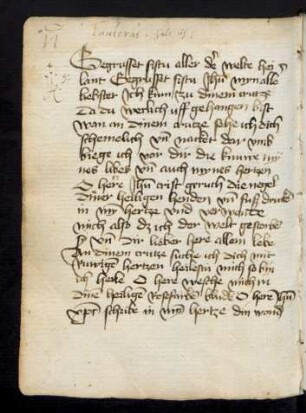 Gegrusset sistu aller der welte hei
lant Gegrusset sistu Jhu myn aller
liebster Ich kum zu dinem crutze
Da du werlich uff gehangen bist
wan an dinem crutze sehe ich dich
schemelich vn nacket dar vmb
biege ich vor dir die knuwe my
nes libes vn auch mynes hertzen
O here Jhu crist gruch die negel
diner heiligen henden vn fuß drucke
in my hertze vnd verwunde
mich also dz ich der welt gestorbe
vn dir lieber here allein lebe
An dinem crutze suche ich dich mit
ruwige hertzen heile su mich so bin
ich heile O here wesche mich in
dine heilige rosefarbe blude O here Jhu
xpe schribe in my hertze din wond